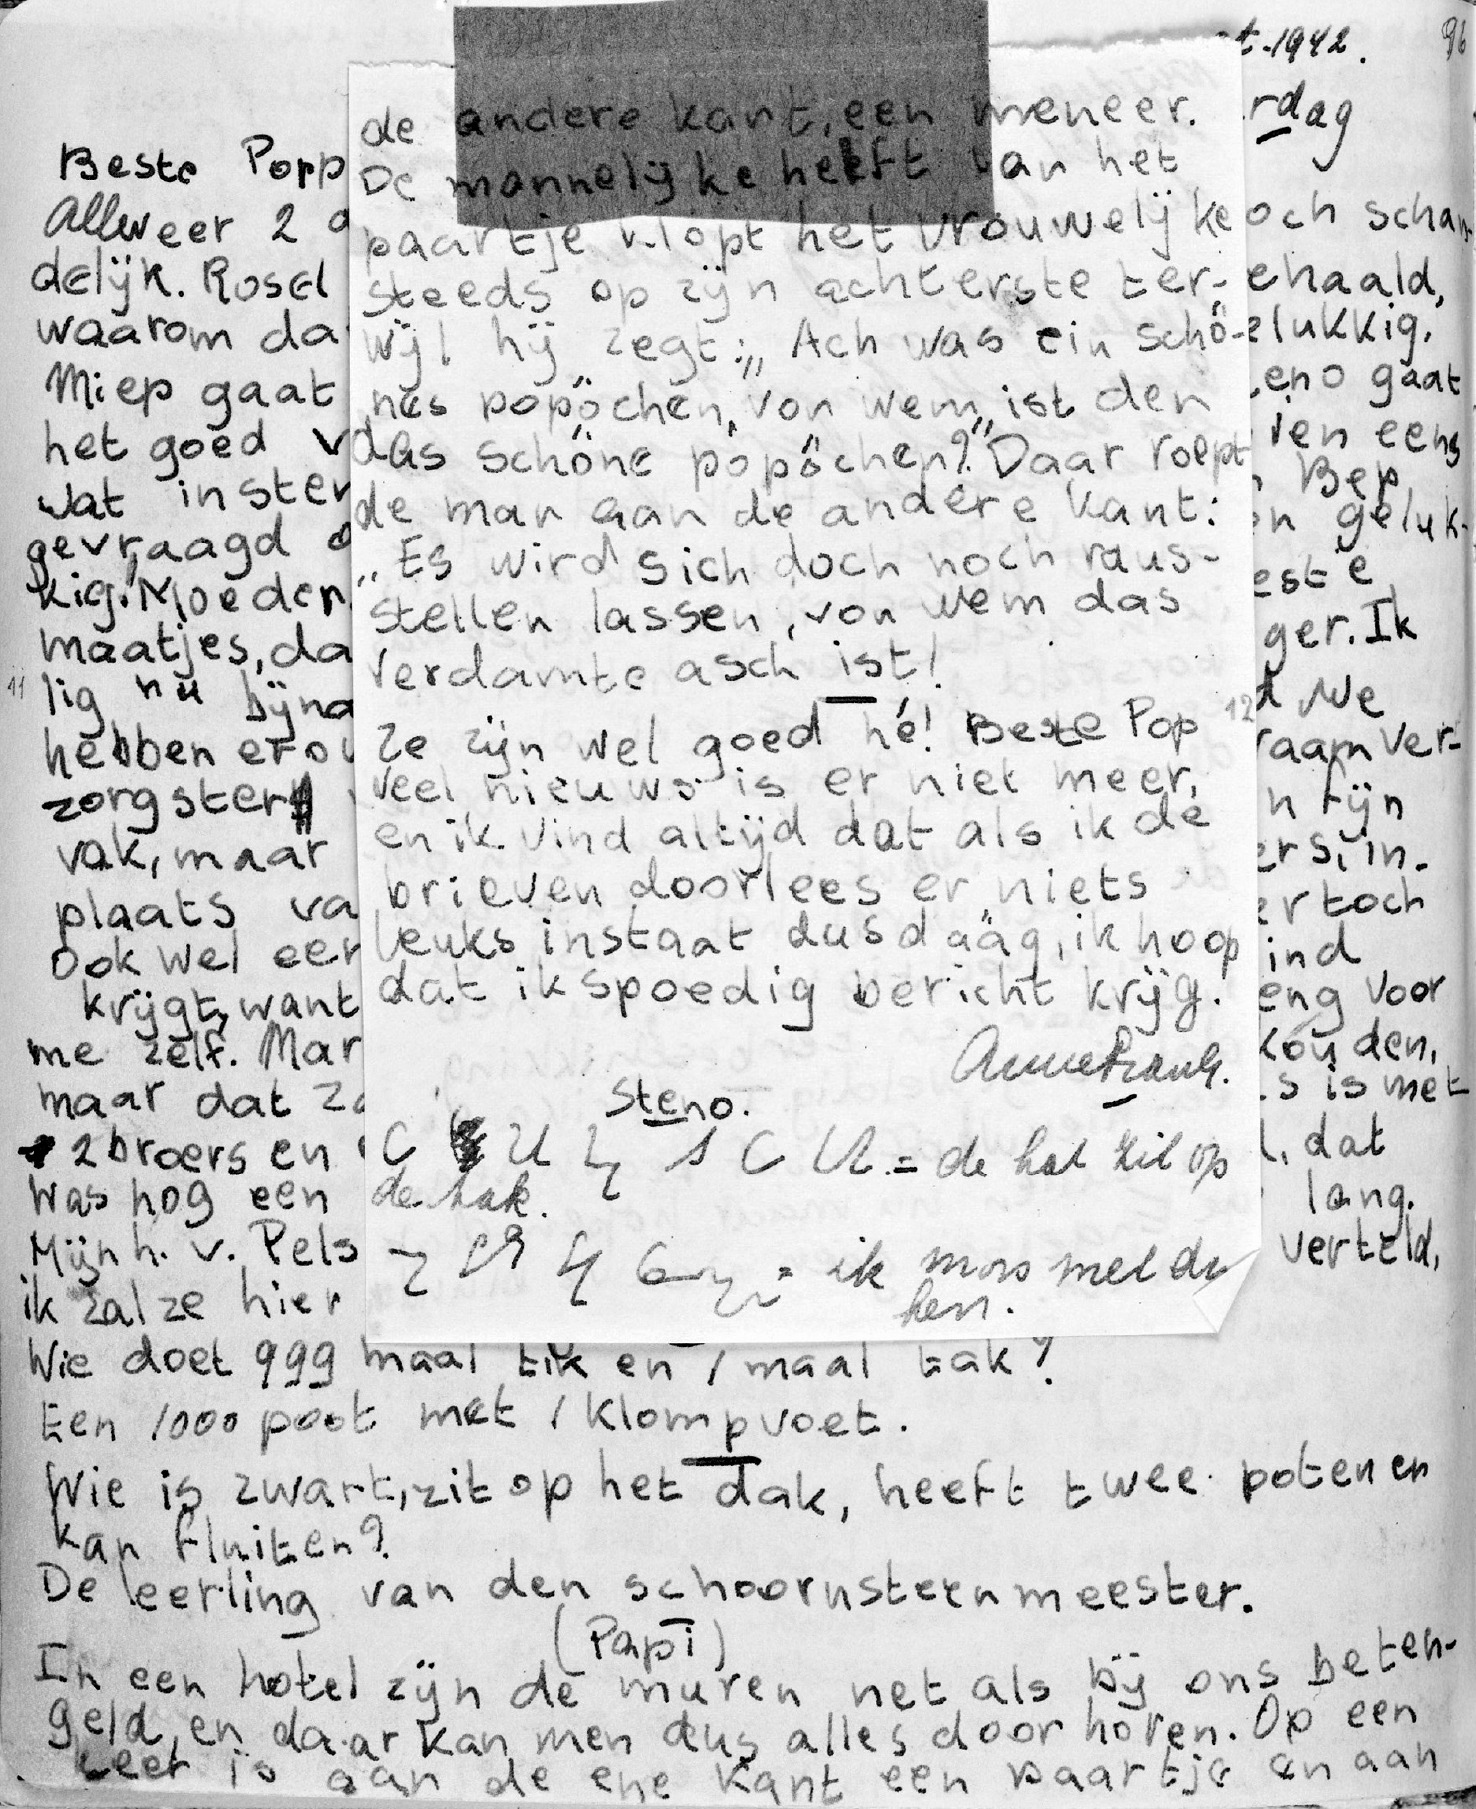 t. 1942.
96
rdag
Beste Popp
Allweer 2
och schan-
delijk. Rosel
ehaald,
waarom da
elukkig.
Miep gaat
eno gaat
het goed v
ien eens
wat in ster
Bep
gevraagd
n geluk-
kig. Moeder
este
maatjes, da
ger. Ik
11
lig nu bijna
We
hebben er
raam ver-
zorgster
n fijn
vak, maar
ers, in-
plaats va
er toch
ook wel eer
ind
krijgt, want
eng voor
me zelf. Mar
kouden,
maar dat
s is met
2 broers en
dat
was nog een
lang.
Mijnh. v. Pels
verteld,
ik zal ze hier
de andere kant, een meneer.
De mannelijke helft van het
paartje klopt het vrouwelijke
steeds op zijn achterste ter-
wijl hij zegt: „Ach was ein schö-
nes popöchen, von wem ist den
das schöne popöchen?" Daar roept
de man aan de andere kant:
„Es wird sich doch noch raus-
stellen lassen, von wem das
verdamte asch ist!
Ze zijn wel goed hé! Beste Pop
12
veel nieuws is er niet meer,
en ik vind altijd dat als ik de
brieven doorlees er niets
leuks instaat dus dáág, ik hoop
dat ik spoedig bericht krijg.
Anne Frank.
Steno.
= de hat zit op
de hak.
= ik mors met de
hen.
Wie doet 999 maal tik en 1 maal tak?
Een 1000 poot met 1 klompvoet.
Wie is zwart, zit op het dak, heeft twee poten en
kan fluiten?
De leerling van den schoornsteenmeester.
(Papi)
In een hotel zijn de muren net als bij ons beten-
geld, en daar kan men dus alles door horen. Op een
keer is aan de ene kant een paartje en aan